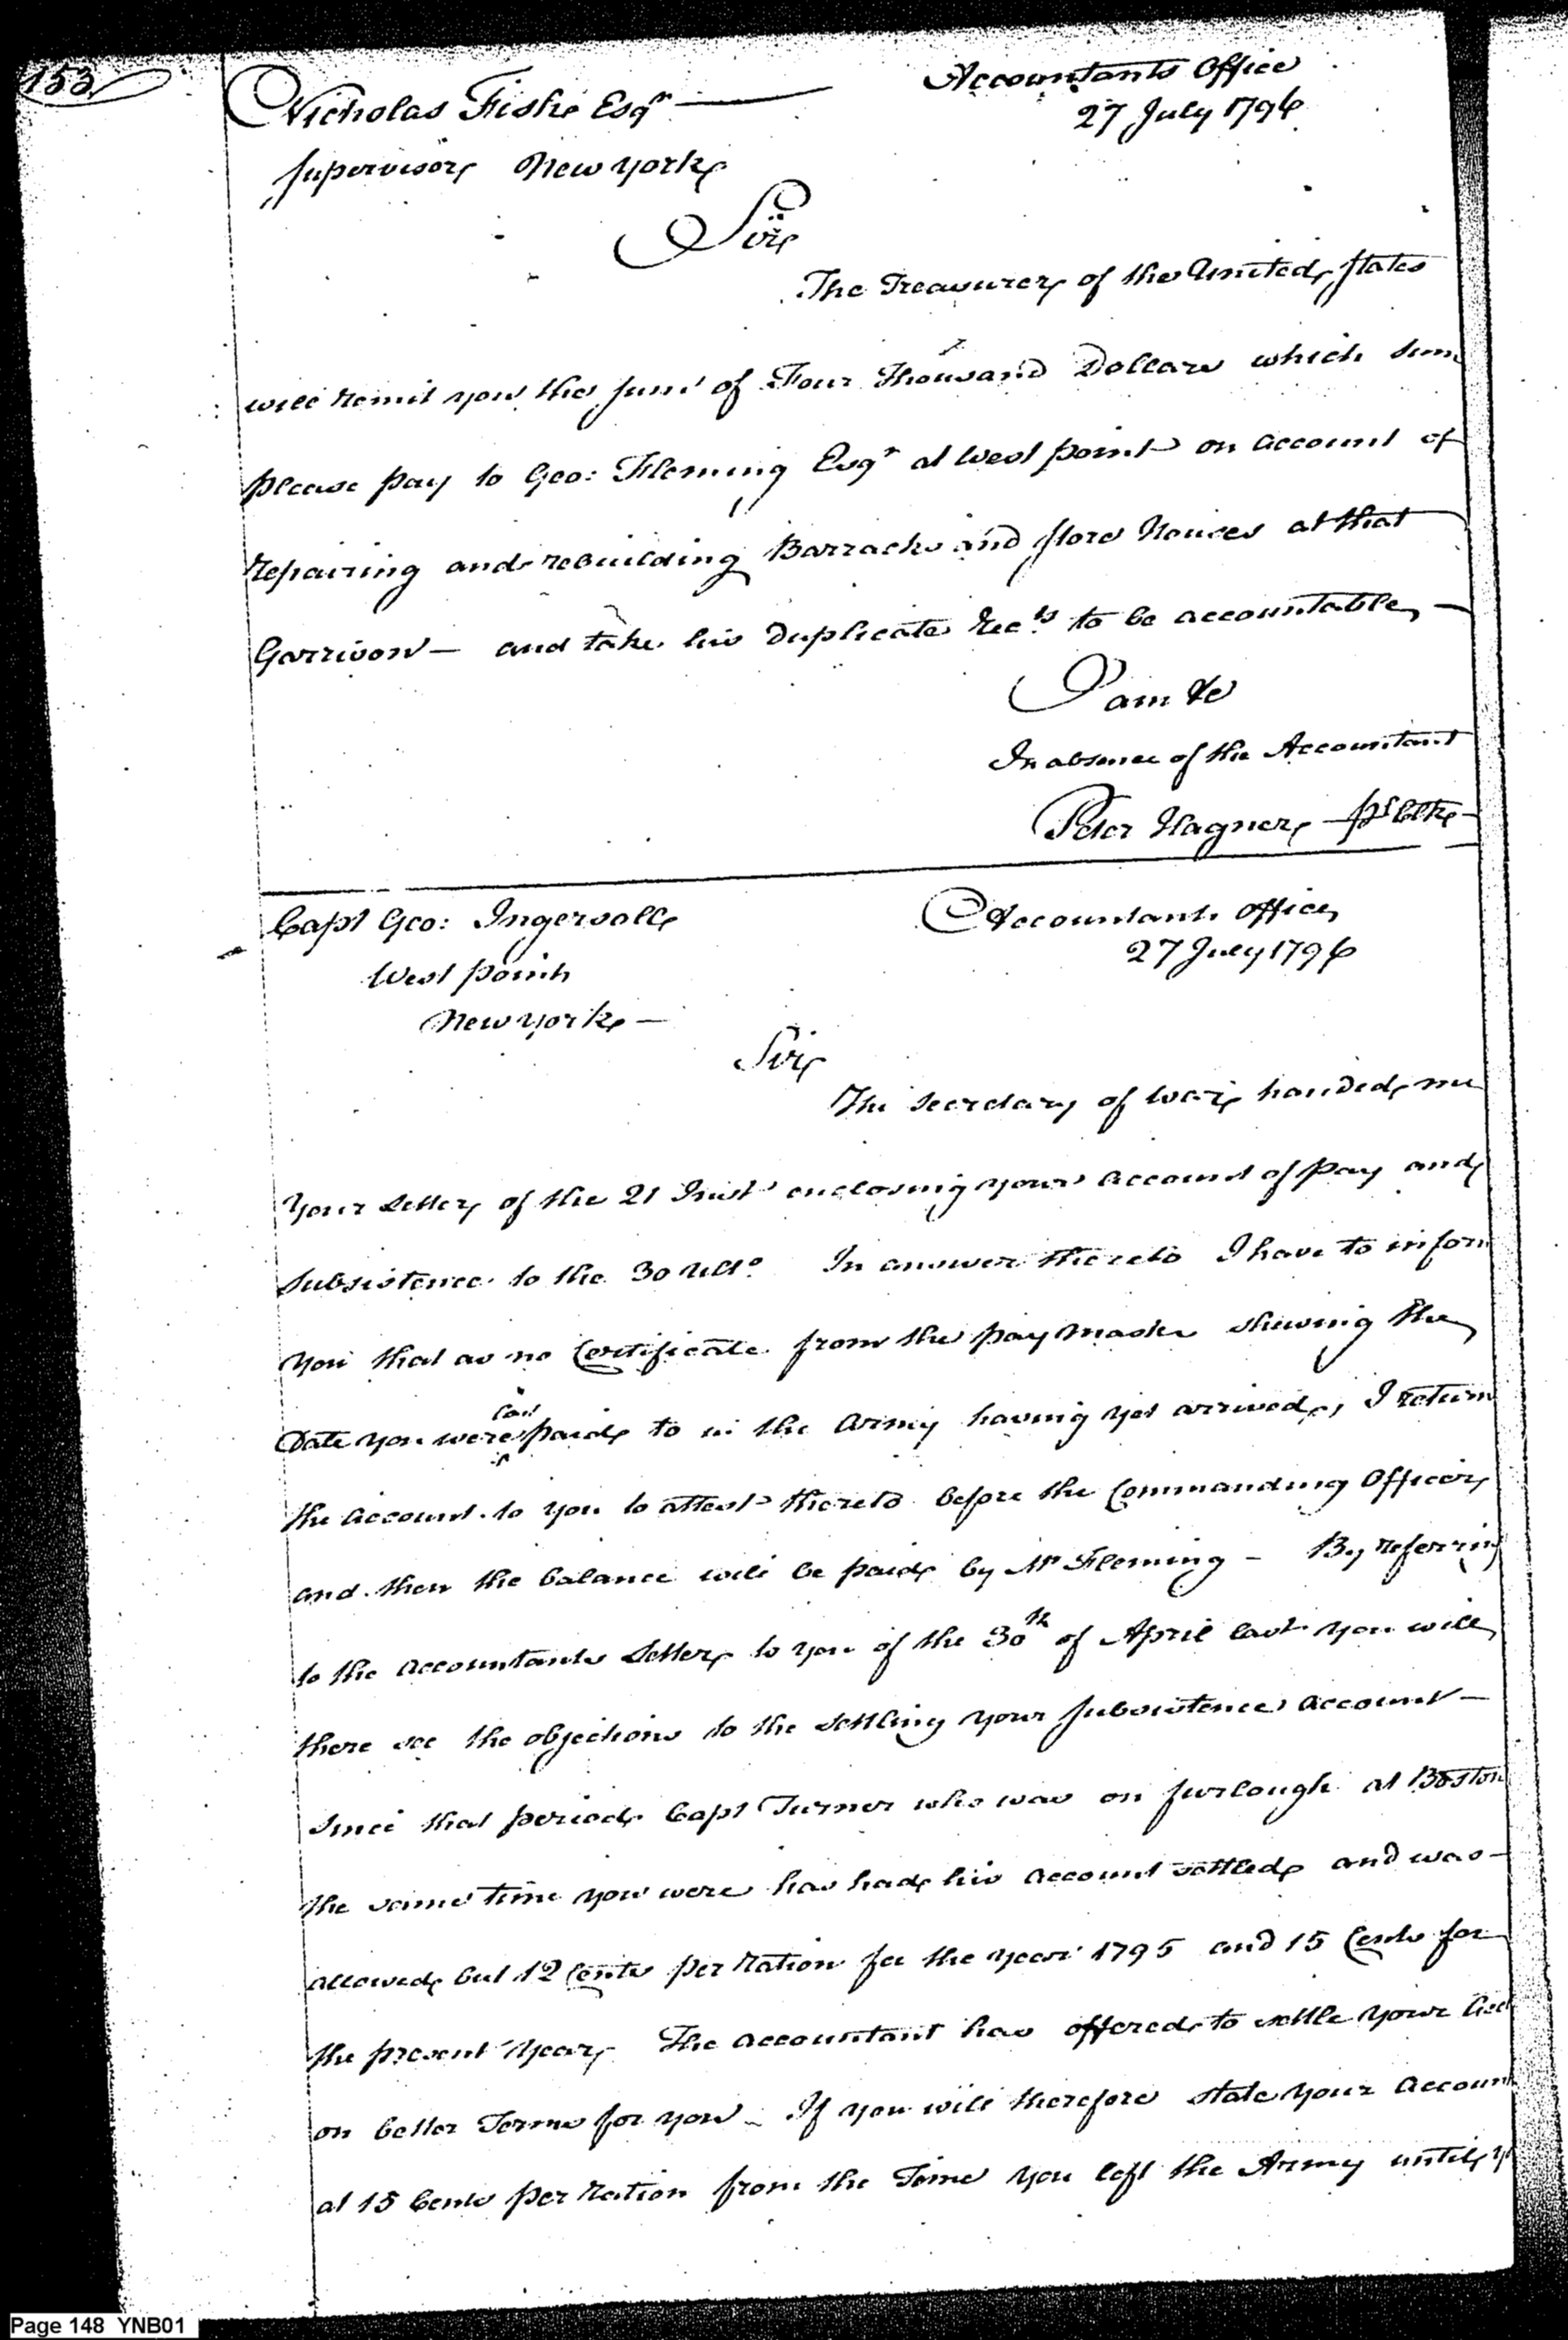 153
Nicholas Fish Esqr
Accountants Office
27 July 1796
Supervisor New York
Sir
The Treasurer of the United States
will remit you the sum of Four Thousand Dollars which sum
please pay to Geo: Fleming Esqr at West point on account of
repairing and rebuilding Barracks and Store Houses at that
Garrison — and take his Duplicate Rec.ts to be accountable —
I am &c
In absence of the Accountant
Peter Hagner pl Clk
Capt Geo: Ingersoll
Accountants Office
27 July 1796
West point
New York —
Sir
The Secretary of War handed me
Your Letter of the 21 Inst enclosing your account of pay and
subsistence to the 30 Ulto. In answer thereto I have to inform
you that as no Certificate from the pay Master shewing the
last
Date you were paid to in the Army having yet arrived, I return
the account to you to attest thereto before the Commanding Officer
and then the balance will be paid by Mr Fleming — By referring
to the accountants Letter to you of the 30th of April last you will
there see the objections to the settling your subsistence account —
Since that period Capt Turner who was on furlough at Boston
the same time you were has had his account settled and was —
allowed but 12 Cents per Ration for the year 1795 and 15 Cents for
the present Year, The accountant has offered to settle your Acct
on better Terms for you — If you will therefore state your account
at 15 Cents per Ration from the Time you left the Army until
Page 148 YNB01